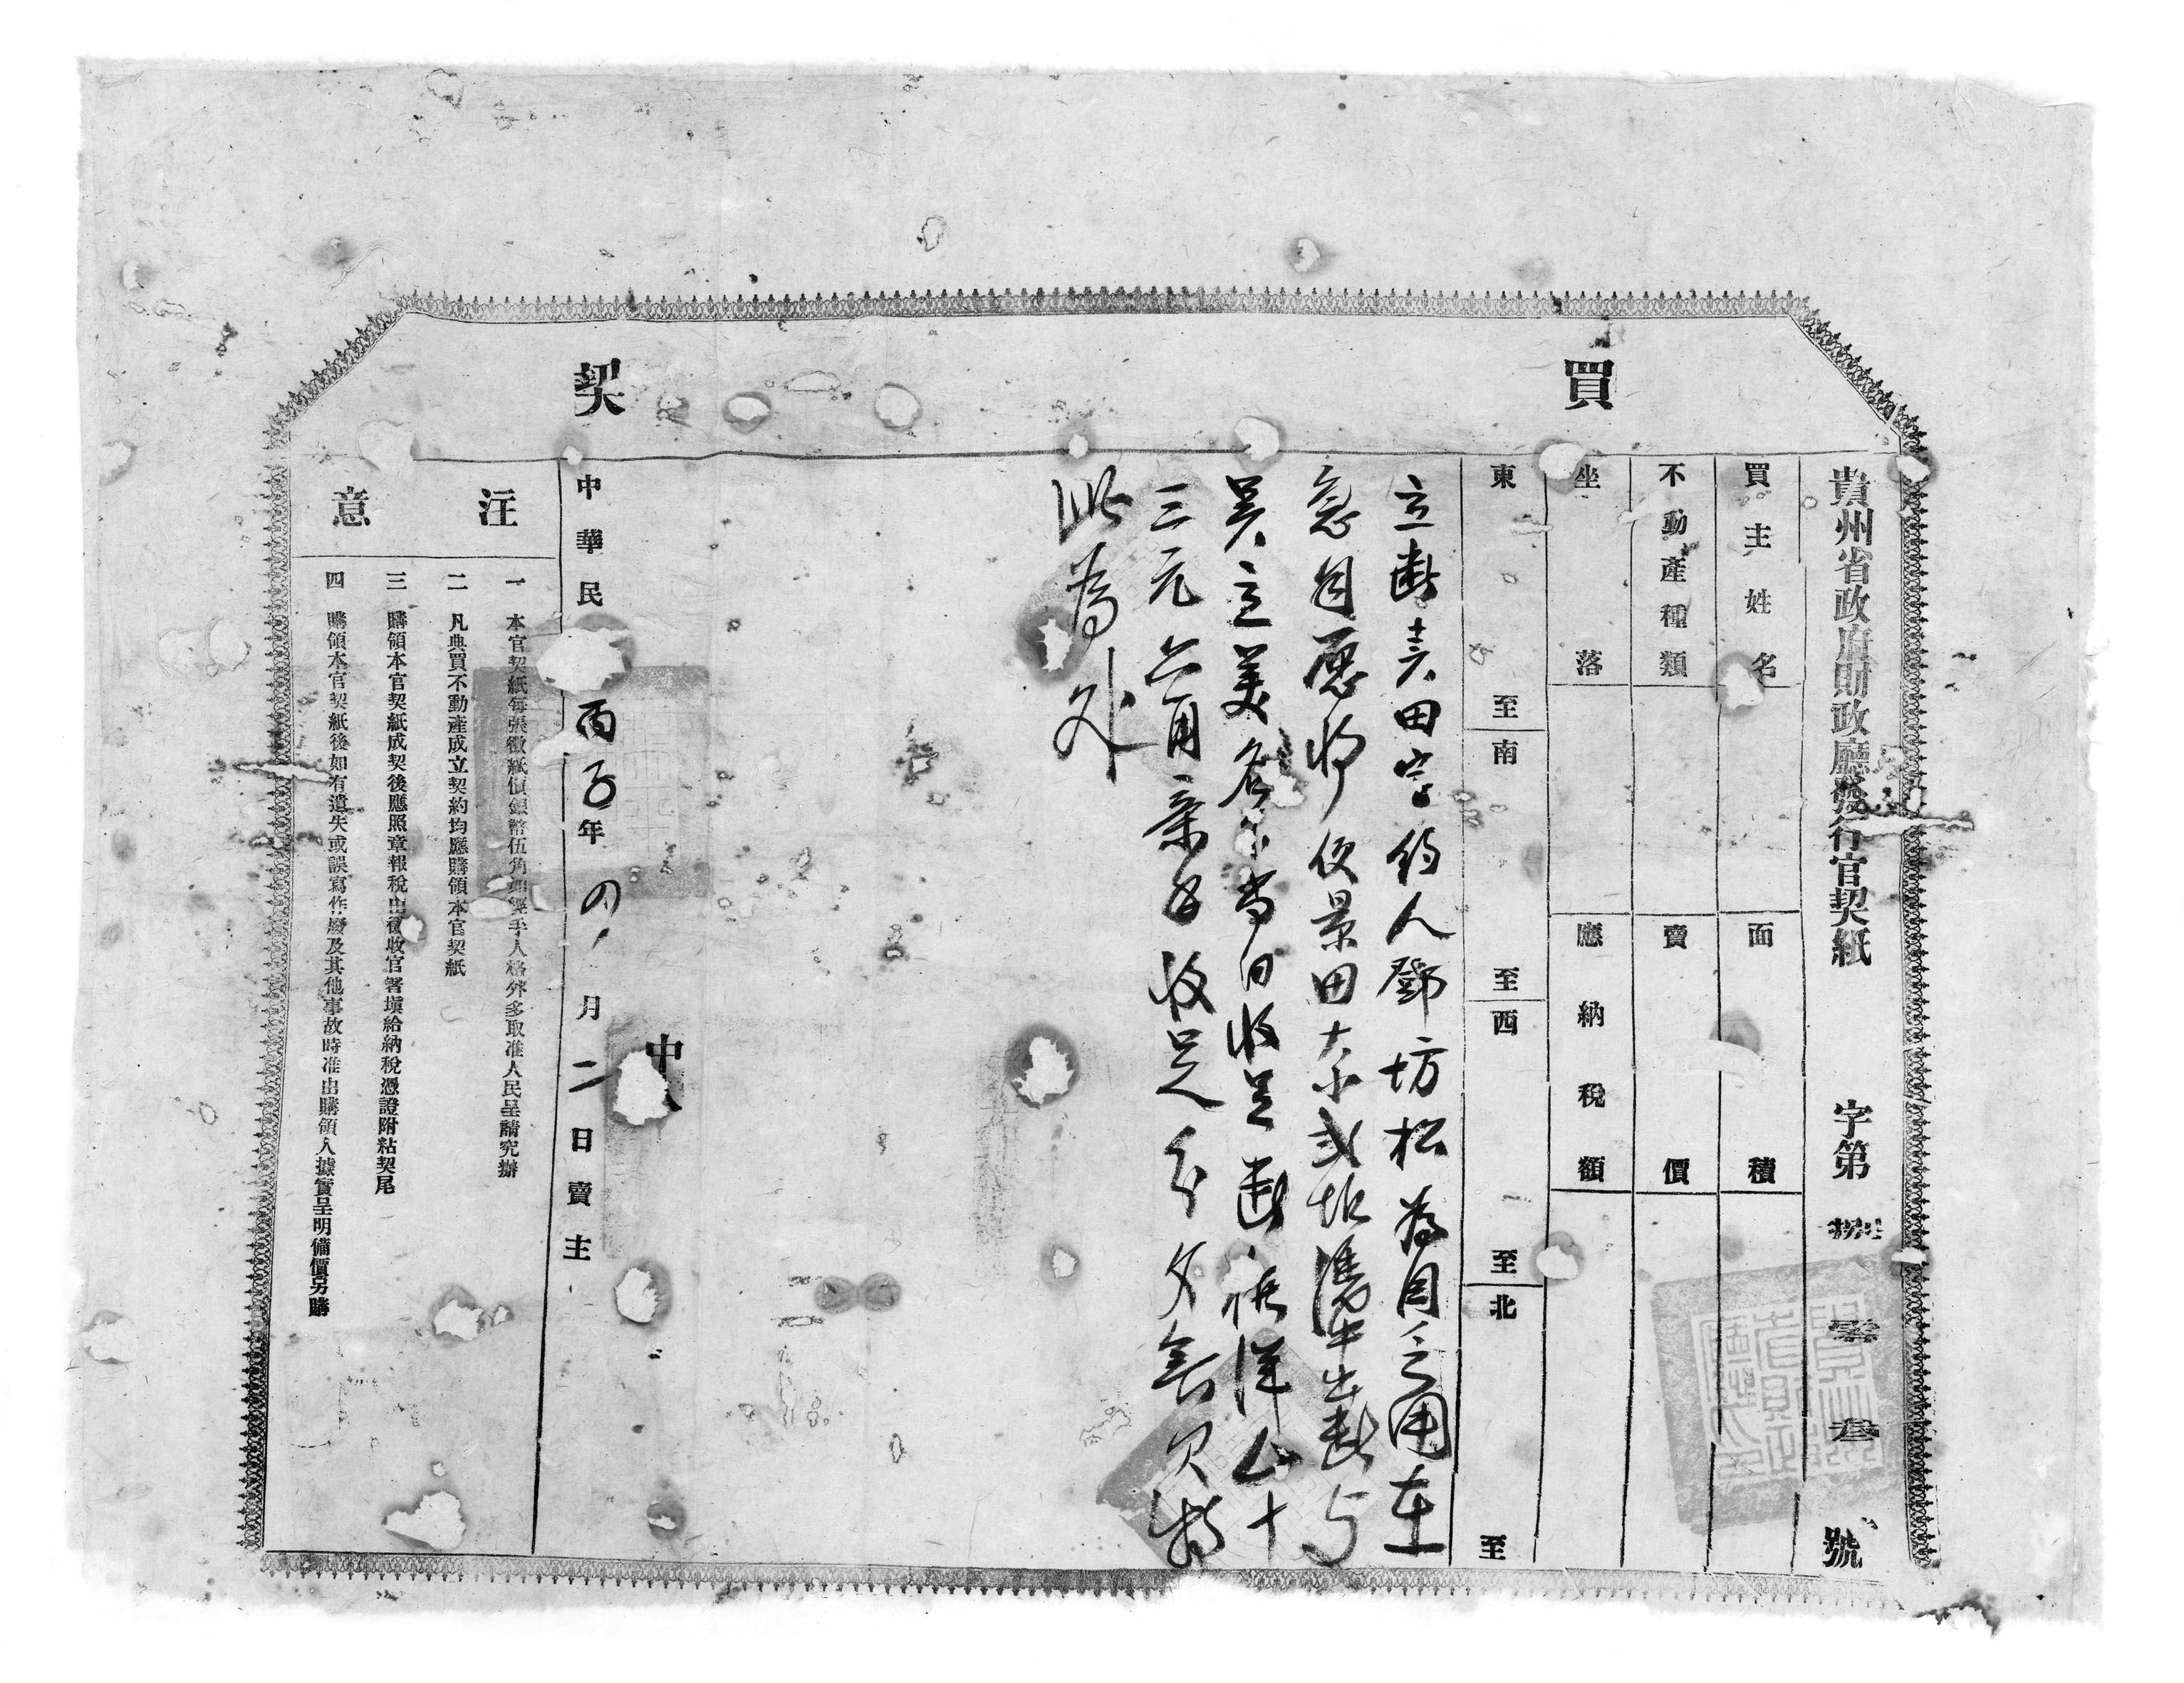 買契
貴州省政府財政廳發行官契紙 字第 捌 零叁號
買主姓名 面積
不動產種類 賣價
坐落 應納稅額
東 至 南 至 西 至 北 至
立斷賣田字約人鄧坊松為因之用在
急自愿將 景田大小貳坵憑中出斷与
吳立美名下当日收是斷 洋 十
三元六角 手收足分文無欠特
此為外
中人
中華民 丙子年四月二日賣主
注意
一 本官契紙每張徵紙價銀幣伍角如經手人格外多取准人民呈請究辦
二 凡典買不動產成立契約均應購領本官契紙
三 購領本官契紙成契後應照章報稅由徵收官署塡給納稅憑證附粘契尾
四 購領本官契紙後如有遺失或誤寫作廢及其他事故時准由購領人據實呈明備價另購